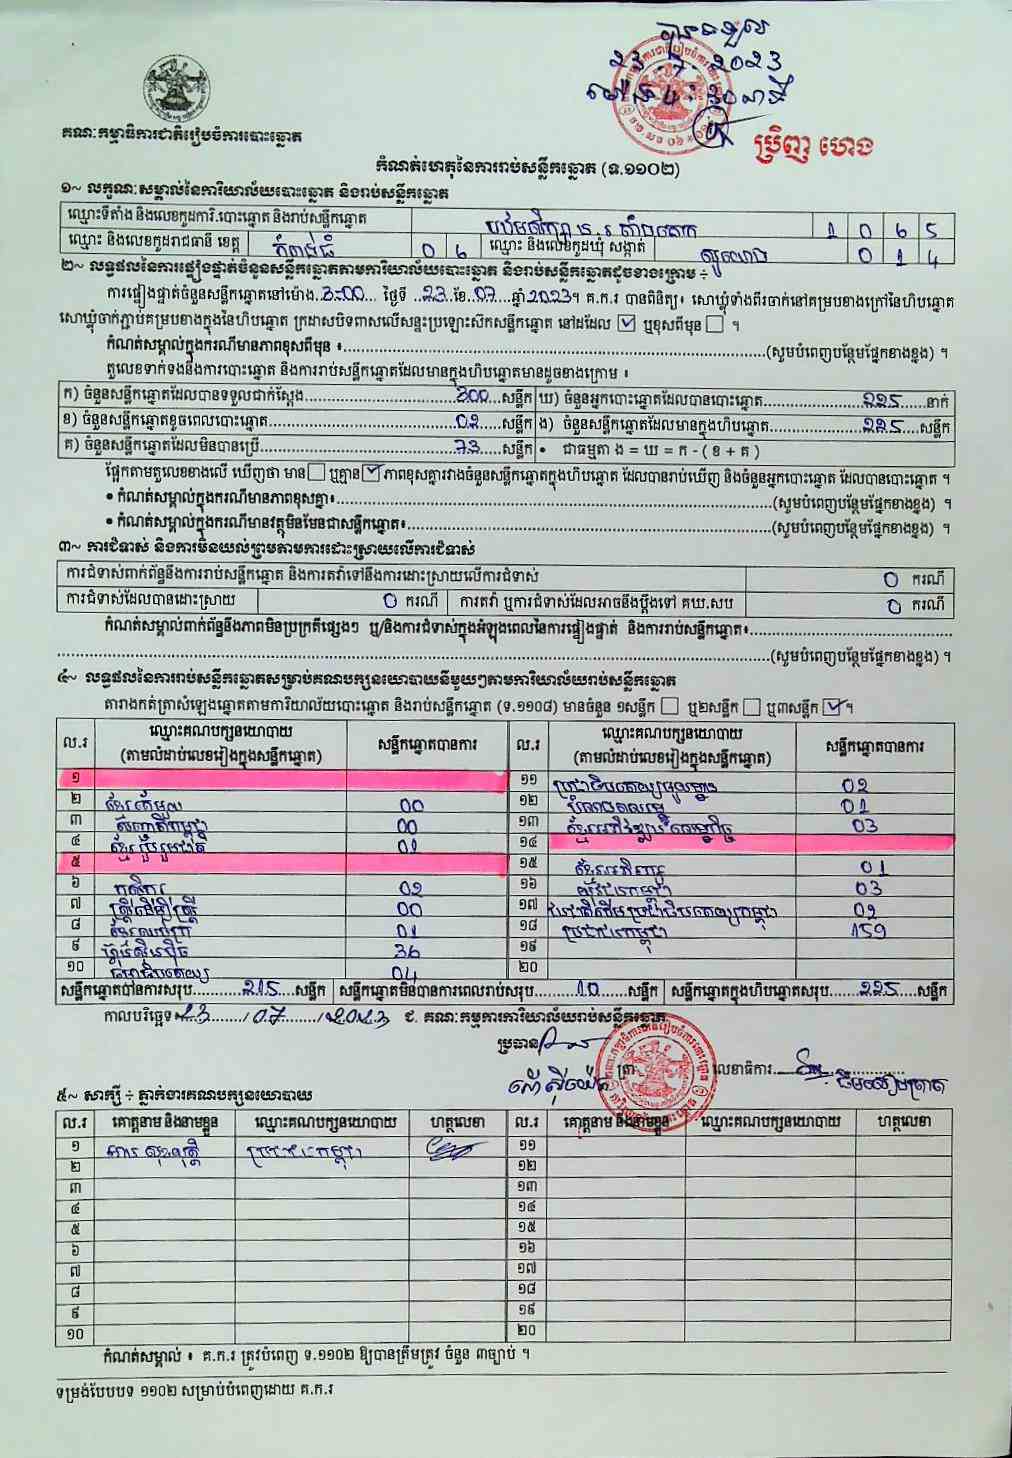 បានទទួល
23.7.2023
ម៉ោង 4:20 នាទី
ប្រិញ ហេង
គណៈកម្មាធិការជាតិរៀបចំការបោះឆ្នោត
កំណត់ហេតុនៃការរាប់សន្លឹកឆ្នោត (ទ.១១០២)
១~ លក្ខណៈសម្គាល់នៃការិយាល័យបោះឆ្នោត និងរាប់សន្លឹកឆ្នោត
ឈ្មោះទីតាំង និងលេខកូដការិ.បោះឆ្នោត និងរាប់សន្លឹកឆ្នោត 1 0 6 5
ឈ្មោះ និងលេខកូដរាជធានី ខេត្ត កំពង់ធំ 0 6 ឈ្មោះ និងលេខកូដឃុំ សង្កាត់ 0 1 4
២~ លទ្ធផលនៃការផ្ទៀងផ្ទាត់ចំនួនសន្លឹកឆ្នោតតាមការិយាល័យបោះឆ្នោត និងរាប់សន្លឹកឆ្នោតដូចខាងក្រោម ÷
ការផ្ទៀងផ្ទាត់ចំនួនសន្លឹកឆ្នោតនៅម៉ោង 3:00 ថ្ងៃទី 23 ខែ 07 ឆ្នាំ 2023។ គ.ក.រ បានពិនិត្យ៖ សោឃ្លុំទាំងពីរចាក់នៅគម្របខាងក្រៅនៃហិបឆ្នោត
សោឃ្លុំចាក់ភ្ជាប់គម្របខាងក្នុងនៃហិបឆ្នោត ក្រដាសបិទពាសលើសន្ទះប្រឡោះសឹកសន្លឹកឆ្នោត នៅដដែល ✓ ឬខុសពីមុន ។
កំណត់សម្គាល់ក្នុងករណីមានភាពខុសពីមុន ៖ (សូមបំពេញបន្ថែមផ្នែកខាងខ្នង) ។
តួលេខទាក់ទងនឹងការបោះឆ្នោត និងការរាប់សន្លឹកឆ្នោតដែលមានក្នុងហិបឆ្នោតមានដូចខាងក្រោម ៖
ក) ចំនួនសន្លឹកឆ្នោតដែលបានទទួលជាក់ស្តែង 300 សន្លឹក ឃ) ចំនួនអ្នកបោះឆ្នោតដែលបានបោះឆ្នោត 225 នាក់
ខ) ចំនួនសន្លឹកឆ្នោតខូចពេលបោះឆ្នោត 02 សន្លឹក ង) ចំនួនសន្លឹកឆ្នោតដែលមានក្នុងហិបឆ្នោត 225 សន្លឹក
គ) ចំនួនសន្លឹកឆ្នោតដែលមិនបានប្រើ 73 សន្លឹក • ជាធម្មតា ង = ឃ = ក - ( ខ + គ )
ផ្អែកតាមតួលេខខាងលើ ឃើញថា មាន ឬគ្មាន ✓ ភាពខុសគ្នារវាងចំនួនសន្លឹកឆ្នោតក្នុងហិបឆ្នោត ដែលបានរាប់ឃើញ និងចំនួនអ្នកបោះឆ្នោត ដែលបានបោះឆ្នោត ។
• កំណត់សម្គាល់ក្នុងករណីមានភាពខុសគ្នា៖ (សូមបំពេញបន្ថែមផ្នែកខាងខ្នង) ។
• កំណត់សម្គាល់ក្នុងករណីមានវត្ថុមិនមែនជាសន្លឹកឆ្នោត៖ (សូមបំពេញបន្ថែមផ្នែកខាងខ្នង) ។
៣~ ការជំទាស់ និងការមិនយល់ព្រមតាមការដោះស្រាយលើការជំទាស់
ការជំទាស់ពាក់ព័ន្ធនឹងការរាប់សន្លឹកឆ្នោត និងការតវ៉ាទៅនឹងការដោះស្រាយលើការជំទាស់ 0 ករណី
ការជំទាស់ដែលបានដោះស្រាយ 0 ករណី ការតវ៉ា ឬការជំទាស់ដែលអាចនឹងប្តឹងទៅ គឃ.សប 0 ករណី
កំណត់សម្គាល់ពាក់ព័ន្ធនឹងភាពមិនប្រក្រតីផ្សេងៗ ឬ/និងការជំទាស់ក្នុងអំឡុងពេលនៃការផ្ទៀងផ្ទាត់ និងការរាប់សន្លឹកឆ្នោត៖
(សូមបំពេញបន្ថែមផ្នែកខាងខ្នង) ។
៤~ លទ្ធផលនៃការរាប់សន្លឹកឆ្នោតសម្រាប់គណបក្សនយោបាយនីមួយៗតាមការិយាល័យរាប់សន្លឹកឆ្នោត
តារាងកត់ត្រាសំឡេងឆ្នោតតាមការិយាល័យបោះឆ្នោត និងរាប់សន្លឹកឆ្នោត (ទ.១១០៨) មានចំនួន ១សន្លឹក ឬ២សន្លឹក ឬ៣សន្លឹក ✓។
ល.រ ឈ្មោះគណបក្សនយោបាយ (តាមលំដាប់លេខរៀងក្នុងសន្លឹកឆ្នោត) សន្លឹកឆ្នោតបានការ ល.រ ឈ្មោះគណបក្សនយោបាយ (តាមលំដាប់លេខរៀងក្នុងសន្លឹកឆ្នោត) សន្លឹកឆ្នោតបានការ
១ ១១ 02
២ ខ្មែរតែមួយ 00 ១២ 01
៣ 00 ១៣ ខ្មែរអភិវឌ្ឍន៍សេដ្ឋកិច្ច 03
៤ ខ្មែររួបរួមជាតិ 01 ១៤
៥ ១៥ 01
៦ កសិករ 02 ១៦ យុវជនកម្ពុជា 03
៧ ស្ត្រីដើម្បីស្ត្រី 00 ១៧ 02
៨ 01 ១៨ ប្រជាជនកម្ពុជា 159
៩ ហ៊្វុនស៊ិនប៉ិច 36 ១៩
១០ ធម្មាធិបតេយ្យ 04 ២០
សន្លឹកឆ្នោតបានការសរុប 215 សន្លឹក សន្លឹកឆ្នោតមិនបានការពេលរាប់សរុប 10 សន្លឹក សន្លឹកឆ្នោតក្នុងហិបឆ្នោតសរុប 225 សន្លឹក
កាលបរិច្ឆេទ 23 / 07 / 2023 ជ. គណៈកម្មការការិយាល័យរាប់សន្លឹកឆ្នោត
ប្រធាន ត្រា លេខាធិការ
៥~ សាក្សី ÷ ភ្នាក់ងារគណបក្សនយោបាយ
ល.រ គោត្តនាម និងនាមខ្លួន ឈ្មោះគណបក្សនយោបាយ ហត្ថលេខា ល.រ គោត្តនាម និងនាមខ្លួន ឈ្មោះគណបក្សនយោបាយ ហត្ថលេខា
១ ប្រជាជនកម្ពុជា ១១
២ ១២
៣ ១៣
៤ ១៤
៥ ១៥
៦ ១៦
៧ ១៧
៨ ១៨
៩ ១៩
១០ ២០
កំណត់សម្គាល់ ៖ គ.ក.រ ត្រូវបំពេញ ទ.១១០២ ឱ្យបានត្រឹមត្រូវ ចំនួន ៣ច្បាប់ ។
ទម្រង់បែបបទ ១១០២ សម្រាប់បំពេញដោយ គ.ក.រ